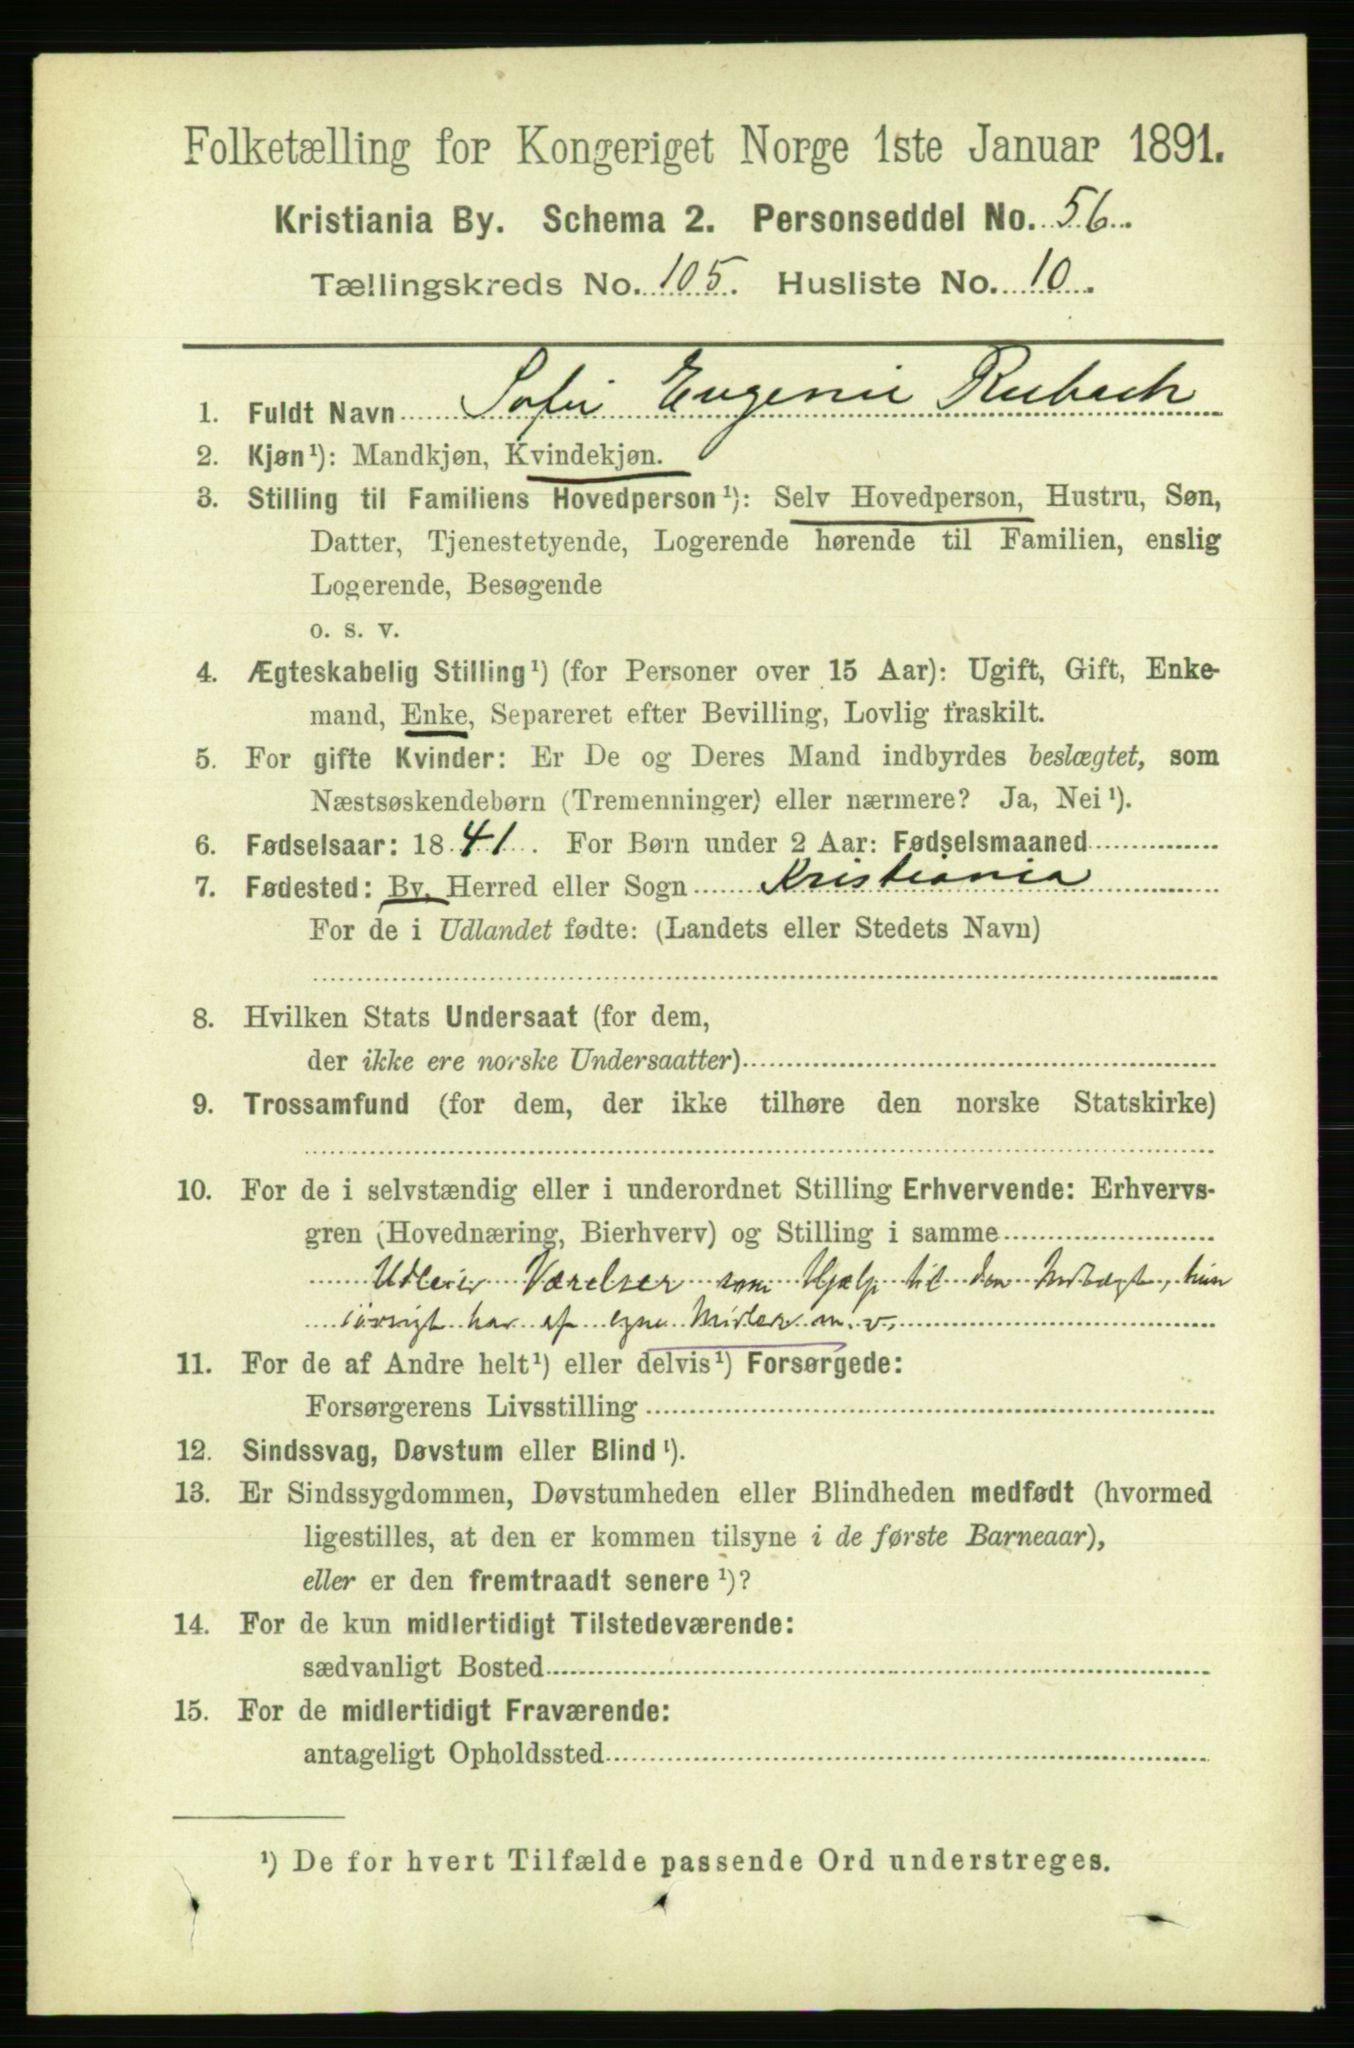 Folketælling for Kongeriget Norge 1ste Januar 1891.
Kristiania By. Schema 2. Personseddel No. 56.
Tællingskreds No. 105. Husliste No. 10.
1. Fuldt Navn Sofie Eugenie Rubach
2. Kjøn¹): Mandkjøn, Kvindekjøn.
3. Stilling til Familiens Hovedperson¹): Selv Hovedperson, Hustru, Søn,
Datter, Tjenestetyende, Logerende hørende til Familien, enslig
Logerende, Besøgende
o. s. v.
4. Ægteskabelig Stilling¹) (for Personer over 15 Aar): Ugift, Gift, Enke-
mand, Enke, Separeret efter Bevilling, Lovlig fraskilt.
5. For gifte Kvinder: Er De og Deres Mand indbyrdes beslægtet, som
Næstsøskendebørn (Tremenninger) eller nærmere? Ja, Nei¹).
6. Fødselsaar: 1841. For Børn under 2 Aar: Fødselsmaaned
7. Fødested: By, Herred eller Sogn Kristiania
For de i Udlandet fødte: (Landets eller Stedets Navn)
8. Hvilken Stats Undersaat (for dem,
der ikke ere norske Undersaatter)
9. Trossamfund (for dem, der ikke tilhøre den norske Statskirke)
10. For de i selvstændig eller i underordnet Stilling Erhvervende: Erhvervs-
gren (Hovednæring, Bierhverv) og Stilling i samme
Udleier Værelser som Hjælp til den Indtægt, hun
iøvrigt har af egne Midler m. v.
11. For de af Andre helt¹) eller delvis¹) Forsørgede:
Forsørgerens Livsstilling
12. Sindssvag, Døvstum eller Blind¹).
13. Er Sindssygdommen, Døvstumheden eller Blindheden medfødt (hvormed
ligestilles, at den er kommen tilsyne i de første Barneaar),
eller er den fremtraadt senere¹)?
14. For de kun midlertidigt Tilstedeværende:
sædvanligt Bosted
15. For de midlertidigt Fraværende:
antageligt Opholdssted
¹) De for hvert Tilfælde passende Ord understreges.